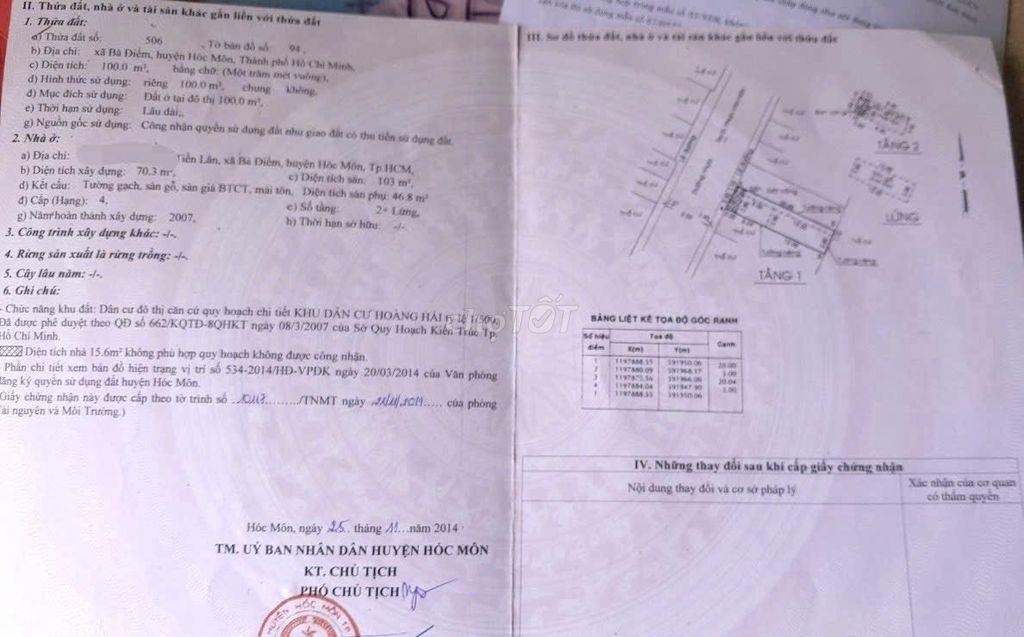 II. Thửa đất, nhà ở và tài sản khác gắn liền với thửa đất
1. Thửa đất:
a) Thửa đất số: 506 , Tờ bản đồ số: 94 ,
b) Địa chỉ: xã Bà Điểm, huyện Hóc Môn, Thành phố Hồ Chí Minh,
c) Diện tích: 100.0 m², bằng chữ: (Một trăm mét vuông),
d) Hình thức sử dụng: riêng 100.0 m², chung không,
đ) Mục đích sử dụng: Đất ở tại đô thị 100.0 m²,
e) Thời hạn sử dụng: Lâu dài,
g) Nguồn gốc sử dụng: Công nhận quyền sử dụng đất như giao đất có thu tiền sử dụng đất.
2. Nhà ở:
a) Địa chỉ: Tiền Lân, xã Bà Điểm, huyện Hóc Môn, Tp.HCM,
b) Diện tích xây dựng: 70.3 m², c) Diện tích sàn: 103 m²,
d) Kết cấu: Tường gạch, sàn gỗ, sàn giả BTCT, mái tôn, Diện tích sàn phụ: 46.8 m²
đ) Cấp (Hạng): 4, e) Số tầng: 2+ Lửng,
g) Năm hoàn thành xây dựng: 2007, h) Thời hạn sở hữu: -/-.
3. Công trình xây dựng khác: -/-.
4. Rừng sản xuất là rừng trồng: -/-.
5. Cây lâu năm: -/-.
6. Ghi chú:
- Chức năng khu đất: Dân cư đô thị căn cứ quy hoạch chi tiết KHU DÂN CƯ HOÀNG HẢI tỷ lệ 1/500,
Đã được phê duyệt theo QĐ số 662/KQTĐ-8QHKT ngày 08/3/2007 của Sở Quy Hoạch Kiến Trúc Tp.
Hồ Chí Minh.
Diện tích nhà 15.6m² không phù hợp quy hoạch không được công nhận.
- Phần chi tiết xem bản đồ hiện trạng vị trí số 534-2014/HĐ-VPĐK ngày 20/03/2014 của Văn phòng
đăng ký quyền sử dụng đất huyện Hóc Môn.
Giấy chứng nhận này được cấp theo tờ trình số ........./TNMT ngày ..... của phòng
Tài nguyên và Môi Trường.)
Hóc Môn, ngày 25 tháng 11 năm 2014
TM. UỶ BAN NHÂN DÂN HUYỆN HÓC MÔN
KT. CHỦ TỊCH
PHÓ CHỦ TỊCH
III. Sơ đồ thửa đất, nhà ở và tài sản khác gắn liền với thửa đất
TẦNG 2
LỬNG
TẦNG 1
chợTỐT
BẢNG LIỆT KÊ TỌA ĐỘ GÓC RANH
Số hiệu điểm Tọa độ Cạnh
X(m) Y(m)
1 1197888.55 591950.06
2 1197880.09 591968.17 20.00
3 1197875.56 591966.06 5.00
4 1197884.04 591947.90 20.04
1 1197888.55 591950.06 5.00
IV. Những thay đổi sau khi cấp giấy chứng nhận
Nội dung thay đổi và cơ sở pháp lý
Xác nhận của cơ quan
có thẩm quyền